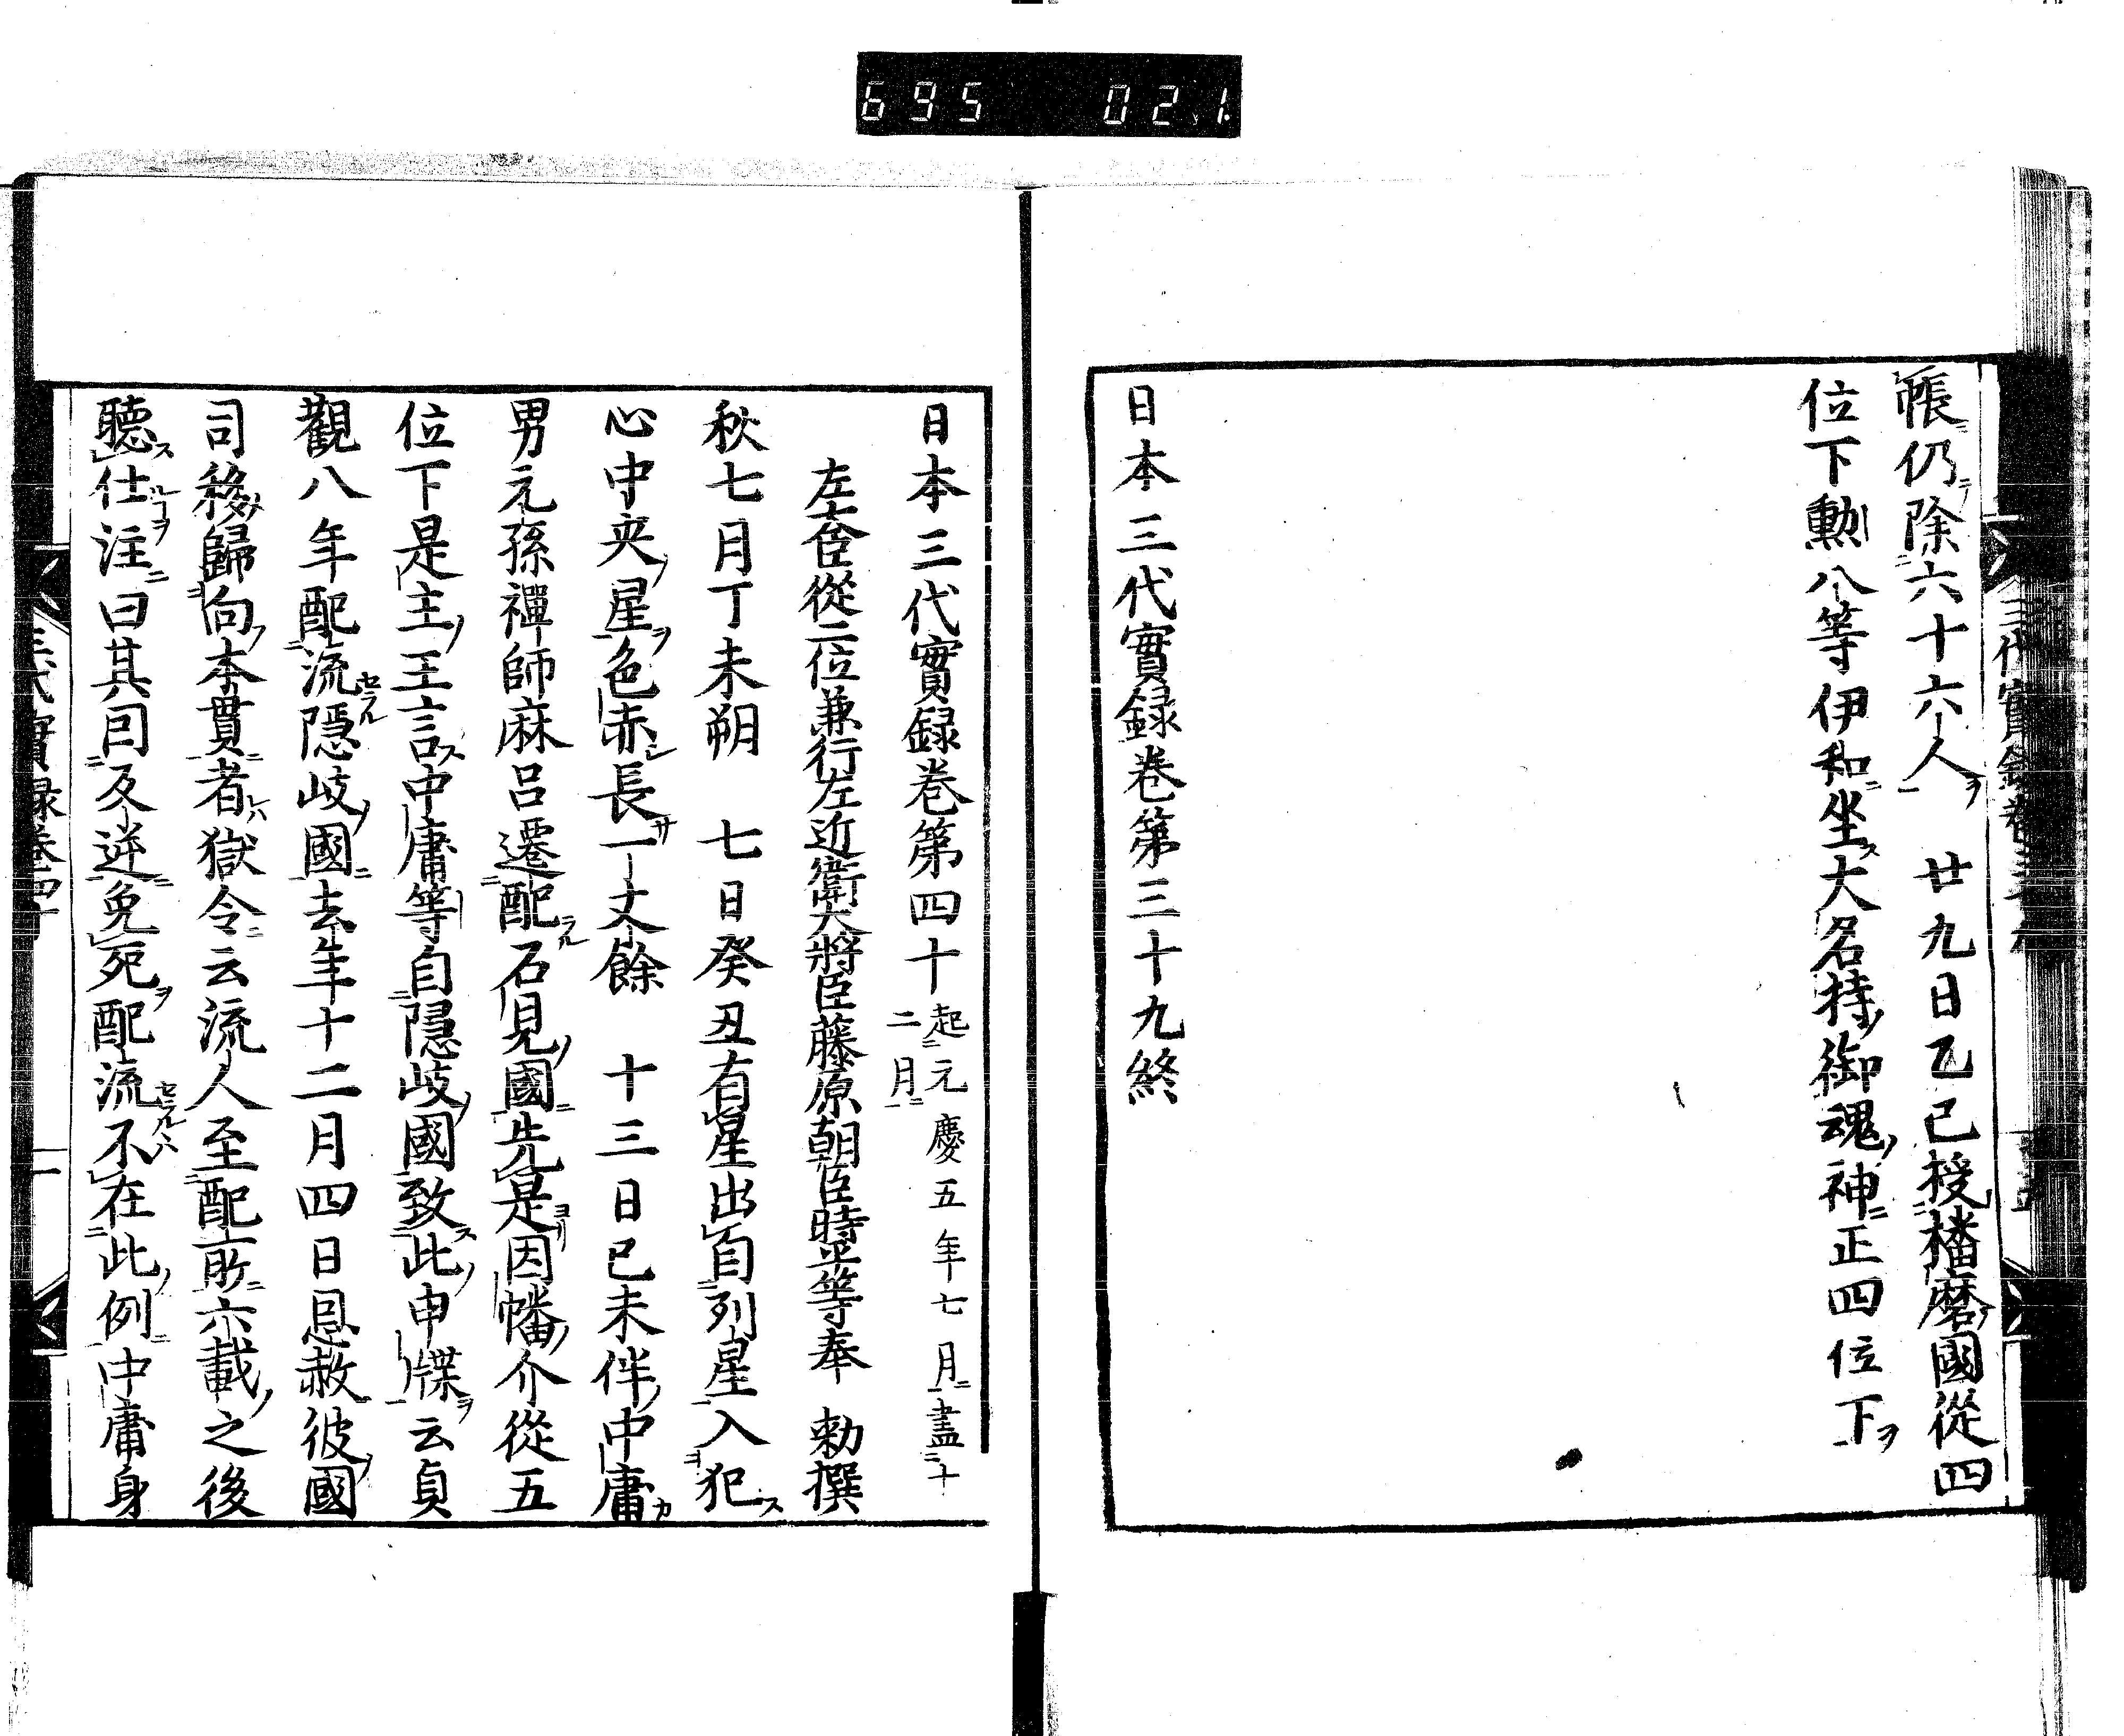 695 021
帳仍除六十六人 廿九日乙巳授播磨國從四
位下勳八等伊和坐大名持御魂神正四位下
日本三代實録巻第三十九終
日本三代實録巻第四十起元慶五年七月盡十二月
左大臣從二位兼行左近衛大將臣藤原朝臣時平等奉 勅撰
秋七月丁未朔 七日癸丑有星出自列星入犯
心中央星色赤長一丈餘 十三日己未伴中庸
男元孫禪師麻呂遷配石見國先是因幡介從五
位下是主王言中庸等自隱岐國致此申牒云貞
觀八年配流隱岐國去年十二月四日恩赦彼國
司移歸向本貫者獄令云流人至配所六載之後
聽仕注曰其因反逆免死配流不在此例中庸身